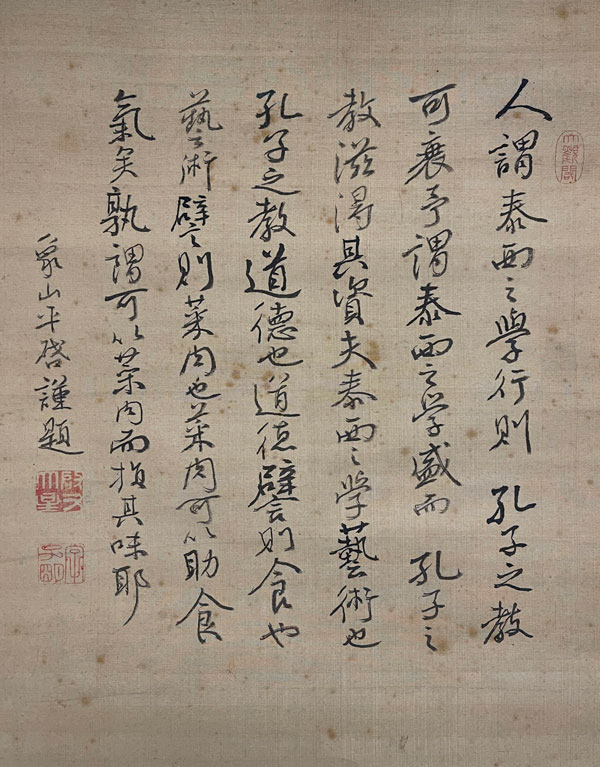 人謂泰西之學行則 孔子之教
可衰予謂泰西之学盛而 孔子之
教滋得其資夫泰西之学藝術也
孔子之教道德也道徳譬則食也
藝術譬則菜肉也菜肉可以助食
氣矣孰謂可以菜肉而損其味耶
象山平啓謹題